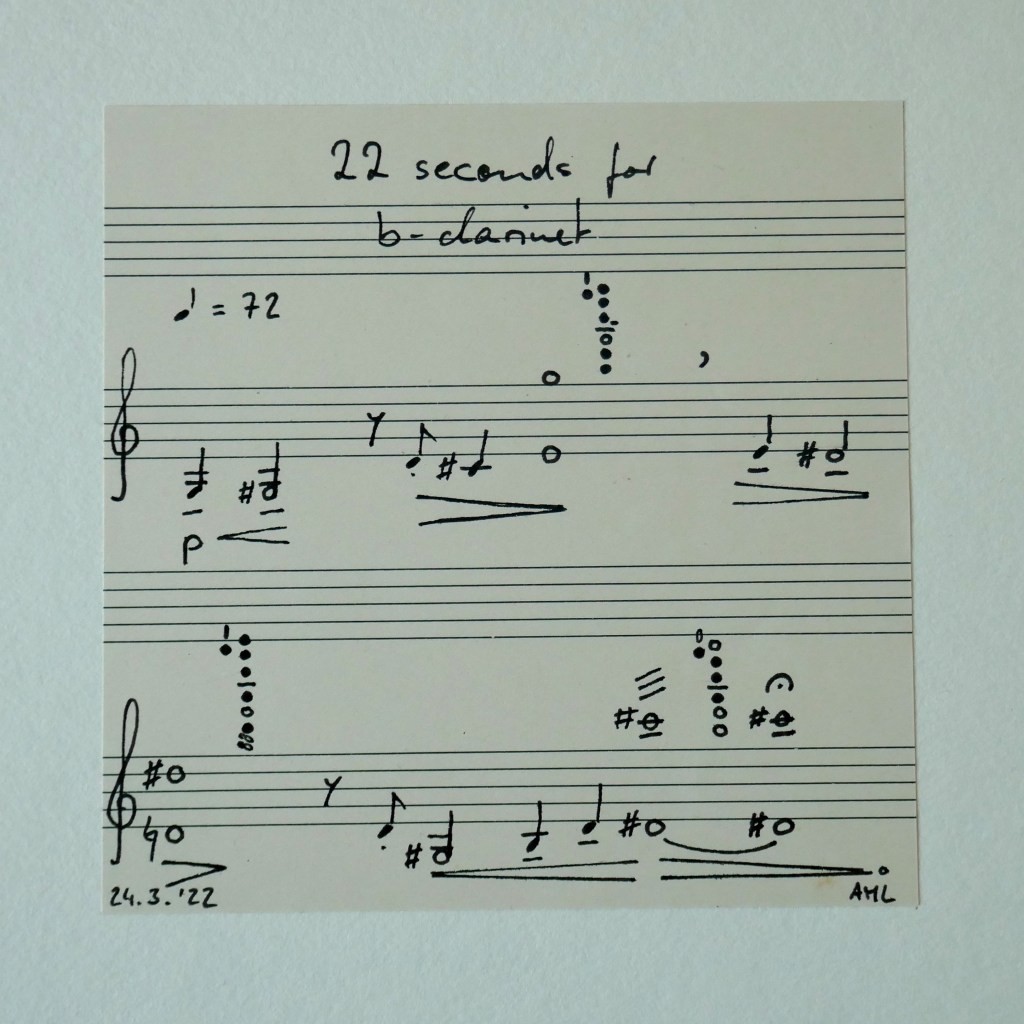 22 seconds for
b-clarinet
♩ = 72
p
24.3.'22
AML